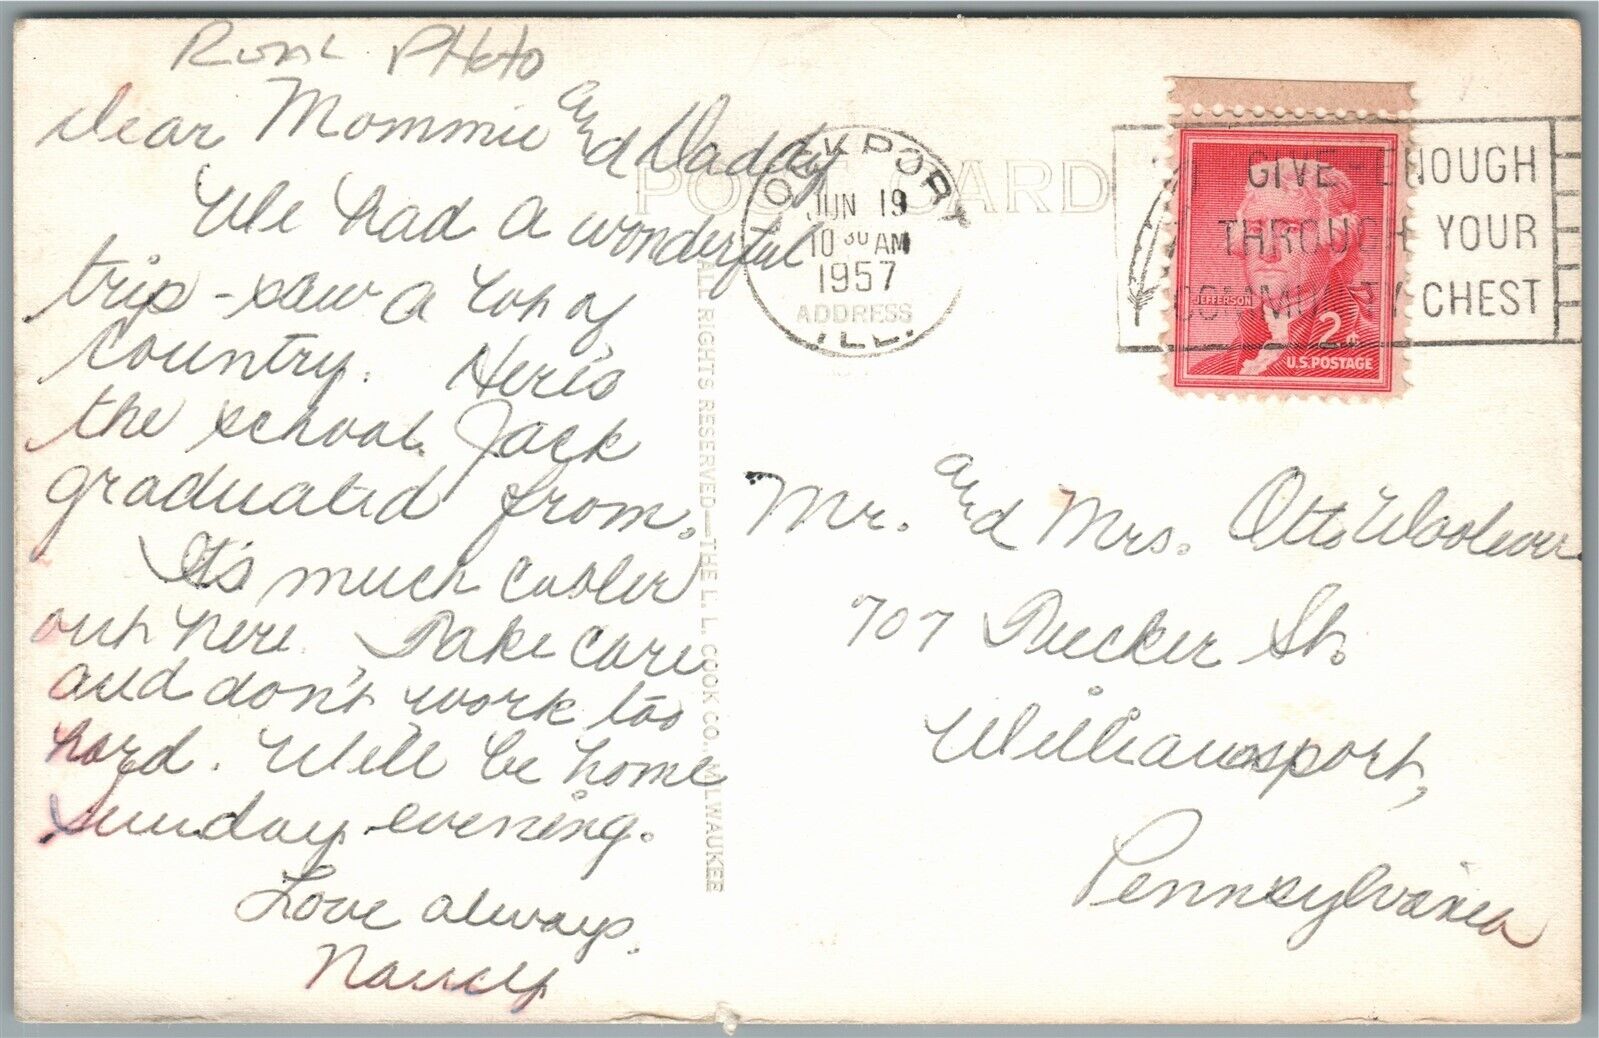 Real Photo
Dear Mommie and Daddy
We had a wonderful
trip - saw a lot of
country. Here's
the school Jack
graduated from.
It's much cooler
out here. Take care
and don't work too
hard. We'll be home
Sunday evening.
Love always,
Nancy
POST CARD
ALL RIGHTS RESERVED—THE L. L. COOK CO., MILWAUKEE
OCKPORT
JUN 19
10 30 AM
1957
ILL.
ADDRESS
GIVE-ENOUGH
THROUGH YOUR
COMMUNITY CHEST
JEFFERSON
2¢
U.S. POSTAGE
Mr. and Mrs. Otto Woolever
707 Rucker St.
Williamsport,
Pennsylvania